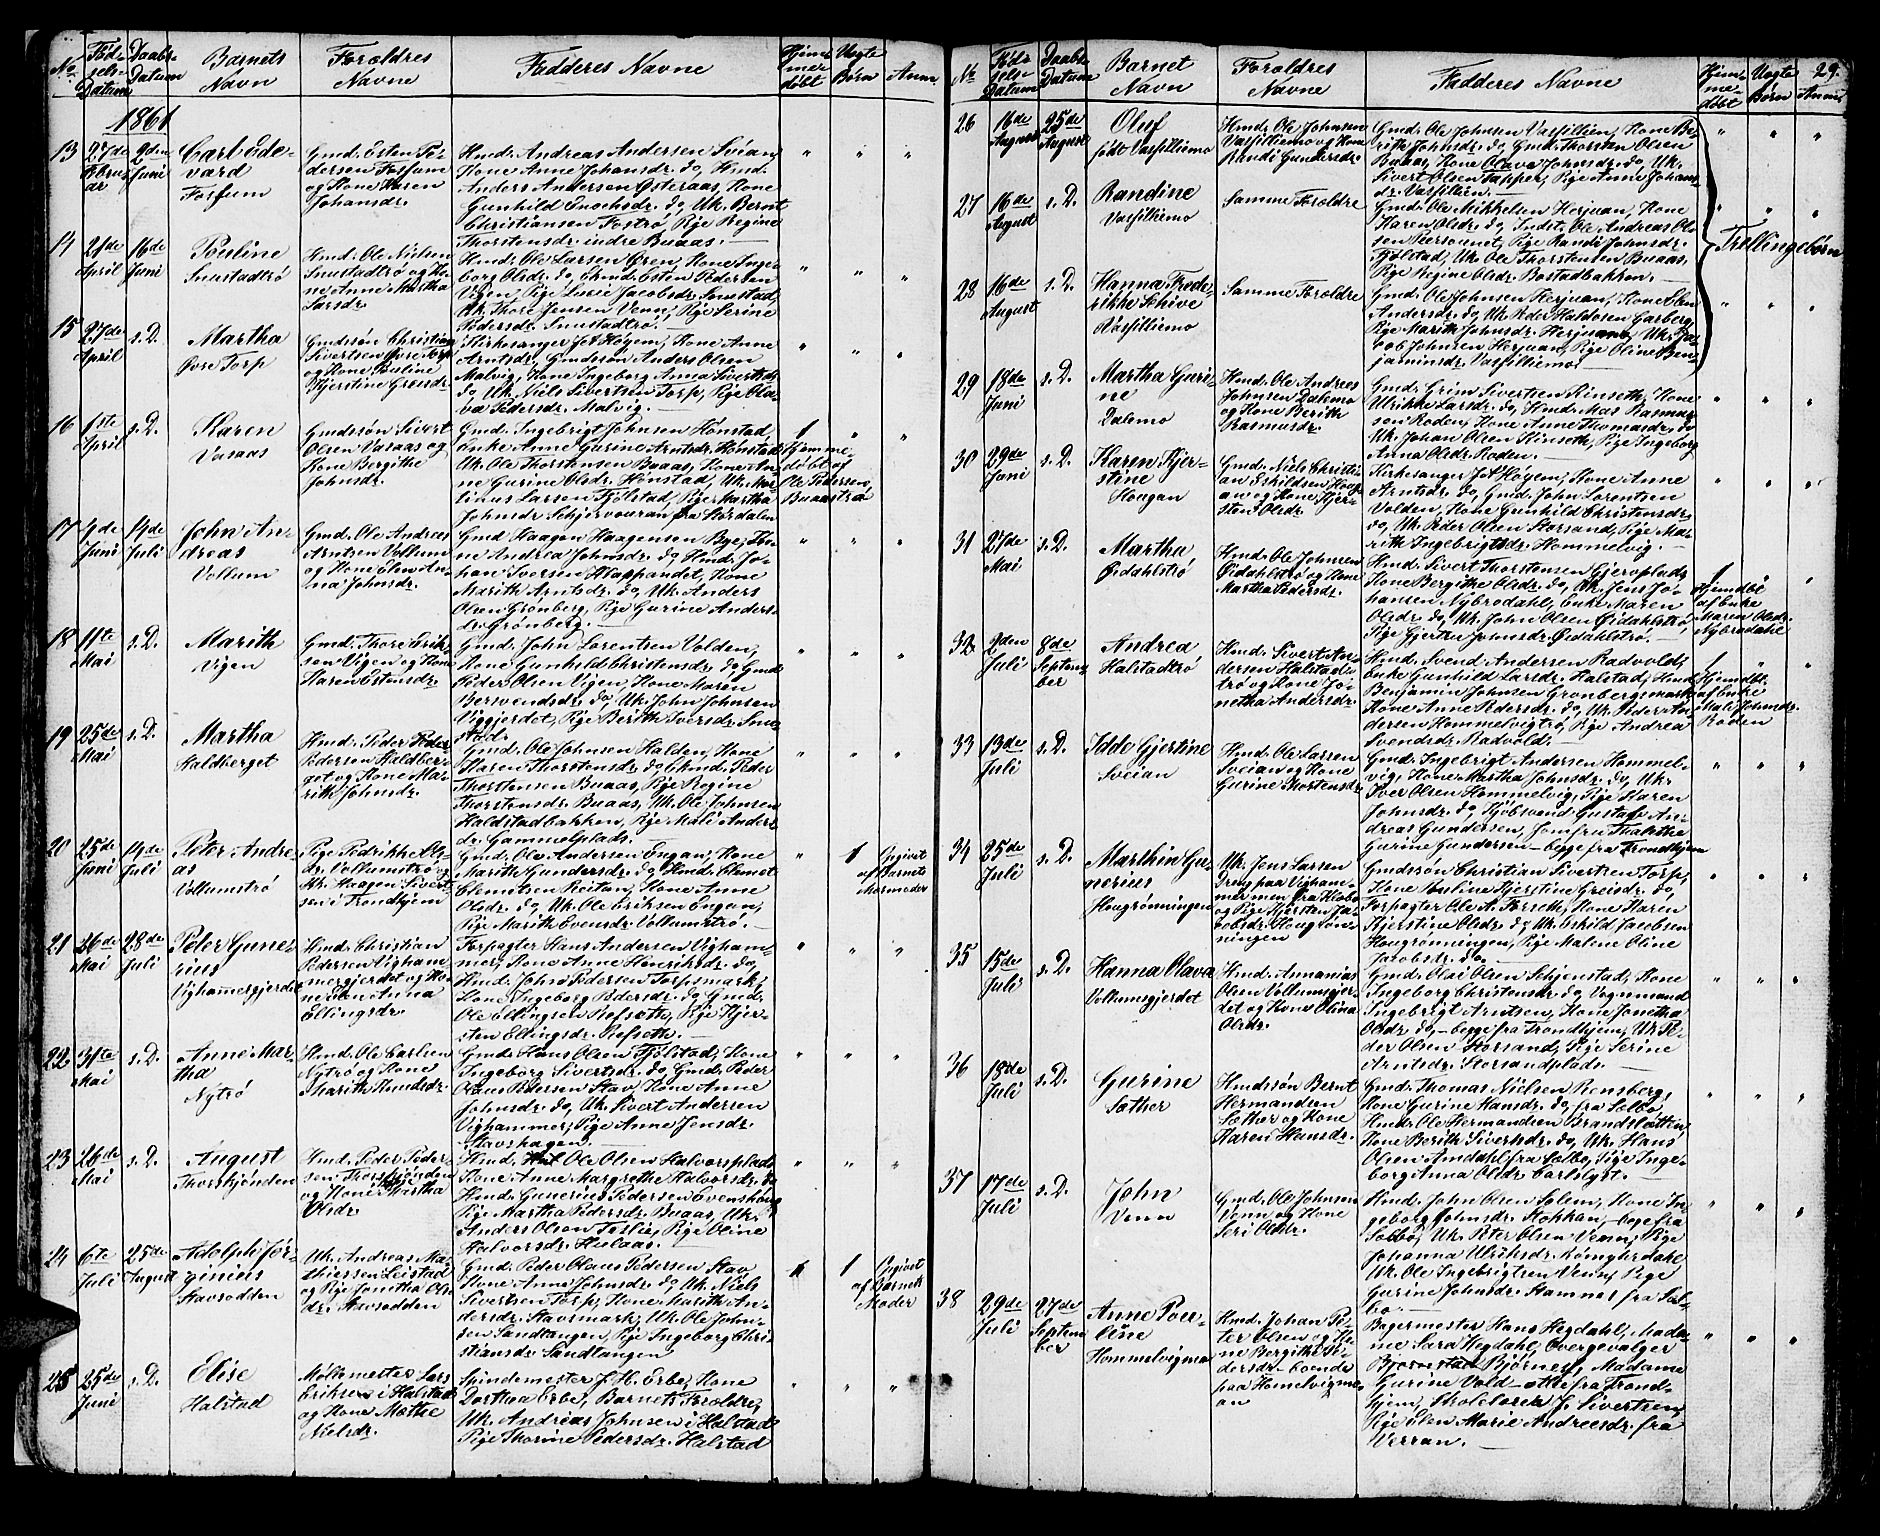 No
Fød-
sels-
Datum
Daabs-
Datum
Barnets
Navn
Forældres
Navne
Fadderes Navne
Hjem-
mer
døbt
Uægte
Børn
Anm.
1861
13
27de
Febru
ar
2den
Juni
Carl Ede-
vard
Fosfum
Gmd. Esten Pe-
dersen Fosfum
og Kone Karen
Johansdr.
Hmd. Andreas Andersen Svéan,
Kone Anne Johansdr. do, Hmd.
Anders Andersen Østeraas, Kone
Gunhild Enochsdr. do, Uk. Bernt
Christiansen Fostrø, Pige Regine
Thorstensdr. indre Buaas. —
14
21de
April
16de
Juni
Pouline
Snustadtrø
Hmd. Ole Nielsen
Snustadtrø og Ko-
ne Anne Martha
Larsdr.
Hmd. Ole Larsen Øren, Kone Inge-
borg Olsdr. do, Hmd. Esten Pedersen
Vigen, Pige Lucie Jacobsdr. Snustad,
Uk. Thore Jensen Venn, Pige Serine
Pedersdr. Snustadtrø. —
15
27de
April
s. D.
Martha
Øvre Torp
Gmdssøn Christian
Sivertsen Øvre Torp
og Kone Pauline
Kjerstine Greisdr.
Kirkesanger J. A. Høyem, Kone Anne
Arntsdr., Gmdssøn Anders Olsen
Malvig, Kone Ingeborg Anna Sivertsdr.
do, Uk. Niels Sivertsen Torp, Pige Ola-
va Pedersdr. Malvig. —
16
1ste
April
s. D.
Karen
Vasaas
Gmdssøn Sivert
Olsen Vasaas og
Kone Bergithe
Johnsdr.
Gmd. Ingebrigt Johnsen Hønstad,
Enke Anne Gurine Arntsdr. Hønstad
Uk. Ole Thorstensen Buaas, Kone An-
ne Gurine Olsdr. Hønstad, Uk. Mar-
tinus Larsen Fjølstad, Pige Martha
Johnsdr. Schjervouran fra Størdalen
1
Hjemme-
døbt af
Ole Pedersen,
Buaastrø
17
4de
Juni
14de
Juli
John An-
dreas
Vollum
Gmd. Ole Andreas
Arntsen Vollum
og Kone Elen An-
na Johnsdr.
Gmd. Haagen Haagensen Bye, Ko-
ne Andrea Johnsdr. do, Hmd. Jo-
han Iversen Klappandet, Kone
Marith Arntsdr. do, Uk. Anders
Olsen Grønberg, Pige Gurine Anders-
dr. Grønberg. —
18
11te
Mai
s. D.
Marith
Vigen
Gmd. Thore Erik-
sen Vigen og Kone
Karen Estensdr.
Gmd. John Lorentsen Volden,
Kone Gunhild Christensdr. do, Gmd.
Peder Olsen Vigen, Kone Maren
Bersvendsdr. do, Uk. John Johnsen
Viggjerdet, Pige Berith Iversdr. Snu-
stad.
19
25de
Mai
s. D.
Martha
Haldberget
Hmd. Peder Peder-
Pedersen Haldber-
get og Kone Ma-
rith Johnsdr.
Gmd. Ole Johnsen Halden, Kone
Karen Thorstensdr. do, Hmd. Peder
Thorstensen Buaas, Pige Regine
Thorstensdr. Buaas, Uk. Ole Johnsen
Haldstadbakken, Pige Mali Anders-
dr. Gammelplads.
20
25de
Juni
14de
Juli
Peter Andre
as
Vollumstrø
Pige Fedrikke Ols-
dr. Vollumstrø og
Uk. Haagen Sivert-
sen i Trondhjem
Gmd. Ole Andersen Engan, Kone
Marith Gundersdr. do, Hmd. Clemet
Clemetsen Roitan, Kone Anne
Olsdr. do, Uk. Ole Eriksen Engan,
Pige Marith Evensdr. Vollumstrø. —
1
Opgivet
af Barnets
Mormoder
21
26de
Mai
28de
Juli
Peter Gune-
rius
Vighammergjerdet
Hmd. Christian
Pedersen Vigham
mergjerdet og Ko-
ne Elen Anna
Ellingsdr.
Forpagter Hans Andersen Vigham-
mer, Kone Anne Henriksdr. do,
Hmd. John Pedersen Torpsmark,
Kone Ingeborg Pedersdr. do, Gmd.
Ole Ellingsen Refseth, Pige Kjer-
sten Ellingsdr. Refseth. —
22
31te
Mai
s. D.
Anne Mar-
tha
Nytrø
Hmd. Ole Carlsen
Nytrø og Kone
Marith Knudsdr.
Gmd. Hans Olsen Fjølstad, Kone
Ingeborg Sivertsdr. do, Gmd. Peder
Olaus Pedersen Stav, Kone Anne
Johnsdr. do, Uk. Sivert Andersen
Vighammer, Pige Anne Jensdr.
Stavshagen. —
23
26de
Mai
s. D.
August
Thorshjønden
Hmd. Peder Peder-
sen Thorshjønden
og Kone Martha
Olsdr.
Hmd. Ole Olsen Halvorsplads
Kone Anne Margrethe Halvorsdr. do
Hmd. Gunerius Pedersen Evenshaug
Pige Martha Pedersdr. Buaas, Uk.
Anders Olsen Teslie, Pige Oline
Halvorsdr. Huslaas. —
24
6te
Juli
25de
August
Adolph Jør-
ginius
Stavsodden
Uk. Andreas Ma-
thiessen Leistad
og Pige Jonetha Ols-
dr. Stavsodden
Gmd. Peder Olaus Pedersen Stav
Kone Anne Johnsdr. do, Uk. Niels
Sivertsen Torp, Kone Marith An-
dersdr. Stavsmark, Uk. Ole John-
sen Sandtangen, Pige Ingeborg Chri-
stiansdr. Sandtangen
1
1
Opgivet
af Barnets
Moder
25
25de
Juni
s. D.
Elise
Halstad
Møllemester Lars
Eriksen i Halstad
og Kone Mathie
Nielsdr.
Spindemester J. H. Erbe, Kone
Dorthea Erbe, Barnets Forældre,
Uk. Andreas Johnsen i Halstad
Pige Thorine Pedersdr. Halstad
29.
Nr
Fød-
sels-
Datum
Daabs-
Datum
Barnet
Navn
Forældres
Navne
Fadderes Navne
Hjem-
me-
døbt
Uægte
Børn
Anm.
26
16de
August
25de
August
Oluf
født Vasfilliemo
Hmd. Ole Johnsen
Vasfilliemo og Kone
Randi Gundersdr.
Gmd. Ole Johnsen Vasfillien, Kone Be-
rith Johnsdr. do, Gmd. Thorsten Olsen
Buaas, Kone Olava Johnsdr. do, Uk.
Sivert Olsen Tapper, Pige Anne Johans-
dr. Vasfillien.
27
16de
August
s. D.
Randine
Vasfilliemo
Samme Forældre
Gmd. Ole Mikkelsen Herjuan, Kone
Karen Olsdr. do, Indst. Ole Andreas Ol-
sen Peersaunet, Pige Randi Johnsdr.
Fjølstad, Uk. Ole Thorstensen Buaas,
Pige Regine Olsdr. Bostadbakken.
Trillingebørn
28
16de
August
s. D.
Hanna Frede-
rikke Schive
Vasfilliemo
Samme Forældre
Gmd. Ole Johnsen Herjuan, Kone Elen
Andersdr. do, Uk. Peder Haldosen Garberg,
Pige Marith Johnsdr. Herjuan, Uk. Ja-
cob Johnsen Herjuan, Pige Oline Ben-
jaminsdr. Vasfilliemo. —
29
18de
Juni
s. D.
Martha Guri-
ne
Dalemo
Hmd. Ole Andreas
Johnsen Dalemo
og Kone Berith
Rasmusdr.
Gmd. Grim Sivertsen Kinseth, Kone
Ulrikke Larsdr. do, Hmd. Mas Rasmus-
sen Roden, Kone Anne Thomasdr. do,
Uk. Johan Olsen Kinseth, Pige Ingeborg
Anna Olsdr. Roden. —
30
29de
Juni
s. D.
Karen Kjer-
stine
Hougan
Gmd. Niels Christi-
an Eskildsen Houg-
an og Kone Kjer-
sten Olsdr.
Kirkesanger J. A. Høyem, Kone Anne
Arntsdr. do, Gmd. John Lorentsen
Volden, Kone Gunhild Christensdr.
do, Uk. Peder Olsen Storsand, Pige Ma-
rith Ingebrigtsdr. Hommelvig. —
31
27de
Mai
s. D.
Martha
Øidahlstrø
Hmd. Ole Johnsen
Øidahlstrø og Kone
Martha Pedersdr.
Hmd. Sivert Thorstensen Gjervplads,
Kone Bergithe Olsdr. do, Uk. Jens Jo-
hansen Nybrodahl, Enke Maren
Olsdr. do, Uk. John Olsen Øidahlstrø,
Pige Gjertru Johnsdr. Øidahlstrø. —
1
Hjemdbt.
af Enke
Maren Olsdr.
Nybrodahl
32
2den
Juli
8de
Septem-
ber
Andrea
Halstadtrø
Hmd. Sivert An-
dersen Halstad-
trø og Kone Jo-
netha Andersdr.
Hmd. Svend Andersen Radvold,
Enke Gunhild Larsdr. Halstad, Hmd.
Benjamin Johnsen Grønbergsmark
Kone Anne Pedersdr. do, Uk. Peder An-
dersen Hommelvigtrø, Pige Andrea
Svendsdr. Radvold. —
1
Hjemdbt.
af Enke
Mali Johnsdr.
Roden
33
13de
Juli
s. D.
Idde Gjertine
Sveian
Hmd. Ole Larsen
Sveian og Kone
Gurine Mortensdr.
Gmd. Ingebrigt Andersen Hommel-
vig, Kone Martha Johnsdr. do, Uk.
Iver Olsen Hommelvig, Pige Karen
Johnsdr. do, Kjøbsvend Gustaf An-
dreas Gundersen, Jomfru Thalethe
Gurine Gundersen — begge fra Trondhjem
34
25de
Juli
s. D.
Marthin Gu-
nerius
Hougrønningen
Uk. Jens Larsen
Dreng paa Vigham-
mer men fra Klæbo
og Pige Kjersten Ja-
cobsdr. Hougrøn-
ningen
Gmdssøn Christian Sivertsen Torp,
Kone Pauline Kjerstine Greisdr. do,
Forpagter Ole A. Forseth, Kone Karen
Kjerstine Olsdr. do, Uk. Eskild Jacobsen
Hougrønningen, Pige Malene Oline
Jacobsdr. do. —
35
15de
Juli
s. D.
Hanna Olava
Vollumsgjerdet
Hmd. Annanias
Olsen Vollumsgjer-
det og Kone Olina
Olsdr.
Gmd. Olai Olsen Schjenstad, Kone
Ingeborg Christensdr. do, Vognmand
Ingebrigt Arntsen, Kone Jonetha
Olsdr. do — begge fra Trondhjem, Uk. Pe-
der Olsen Storsand, Pige Serine
Arntsdr. Storsandplads. —
36
18de
Juli
s. D.
Gurine
Sæther
Hmdssøn Bernt
Hermandsen
Sæther og Kone
Karen Hansdr.
Gmd. Thomas Nielsen Rensberg,
Kone Gurine Hansdr. do, fra Selbo,
Hmd. Ole Hermandsen Brandslætten,
Kone Berith Sivertsdr. do, Uk. Hans
Olsen Amdahl fra Selbo, Pige Inge-
borg Anna Olsdr. Carlslyst. —
37
17de
Juli
s. D.
John
Venn
Gmd. Ole Johnsen
Venn og Kone
Seri Olsdr.
Hmd. John Olsen Solem, Kone In-
geborg Johnsdr. Stokkan, begge fra
Selbo, Uk. Peter Olsen Venn, Pige
Johanna Ulriksdr. Kongherdahl
Uk. Ole Ingebrigtsen Venn, Pige
Gurine Johnsdr. Stamnes fra Sel-
bo. —
38
29de
Juli
27de
Septem
ber
Anne Pou-
line
Hommelvigmo
Hmd. Johan Pe-
ter Olsen og Ko-
ne Bergithe Pe-
dersdr. boende
paa Homelvigmo-
an
Bagermester Hans Hegdahl, Mada-
me Sara Hegdahl, Overgevalger
Bjørnes, Madame
Gurine Vold — alle fra Trond-
hjem, Skolelærer J. Sivertsen,
Pige Elen Marie Andreasdr. fra
Verran. —